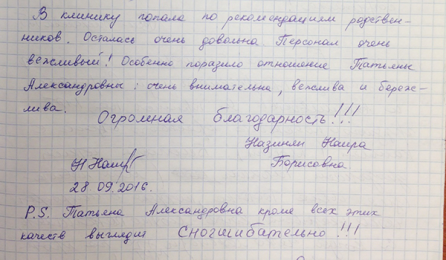 В клинику попала по рекомендациям родствен-
ников. Осталась очень довольна Персонал очень
вежливый! Особенно поразило отношение Татьяны
Александровны: очень внимательна, вежлива и береж-
лива.
Огромная благодарность!!!
Наира
Борисовна
28.09.2016.
P.S. Татьяна Александровна кроме всех этих
качеств выглядит СНОГШИБАТЕЛЬНО!!!